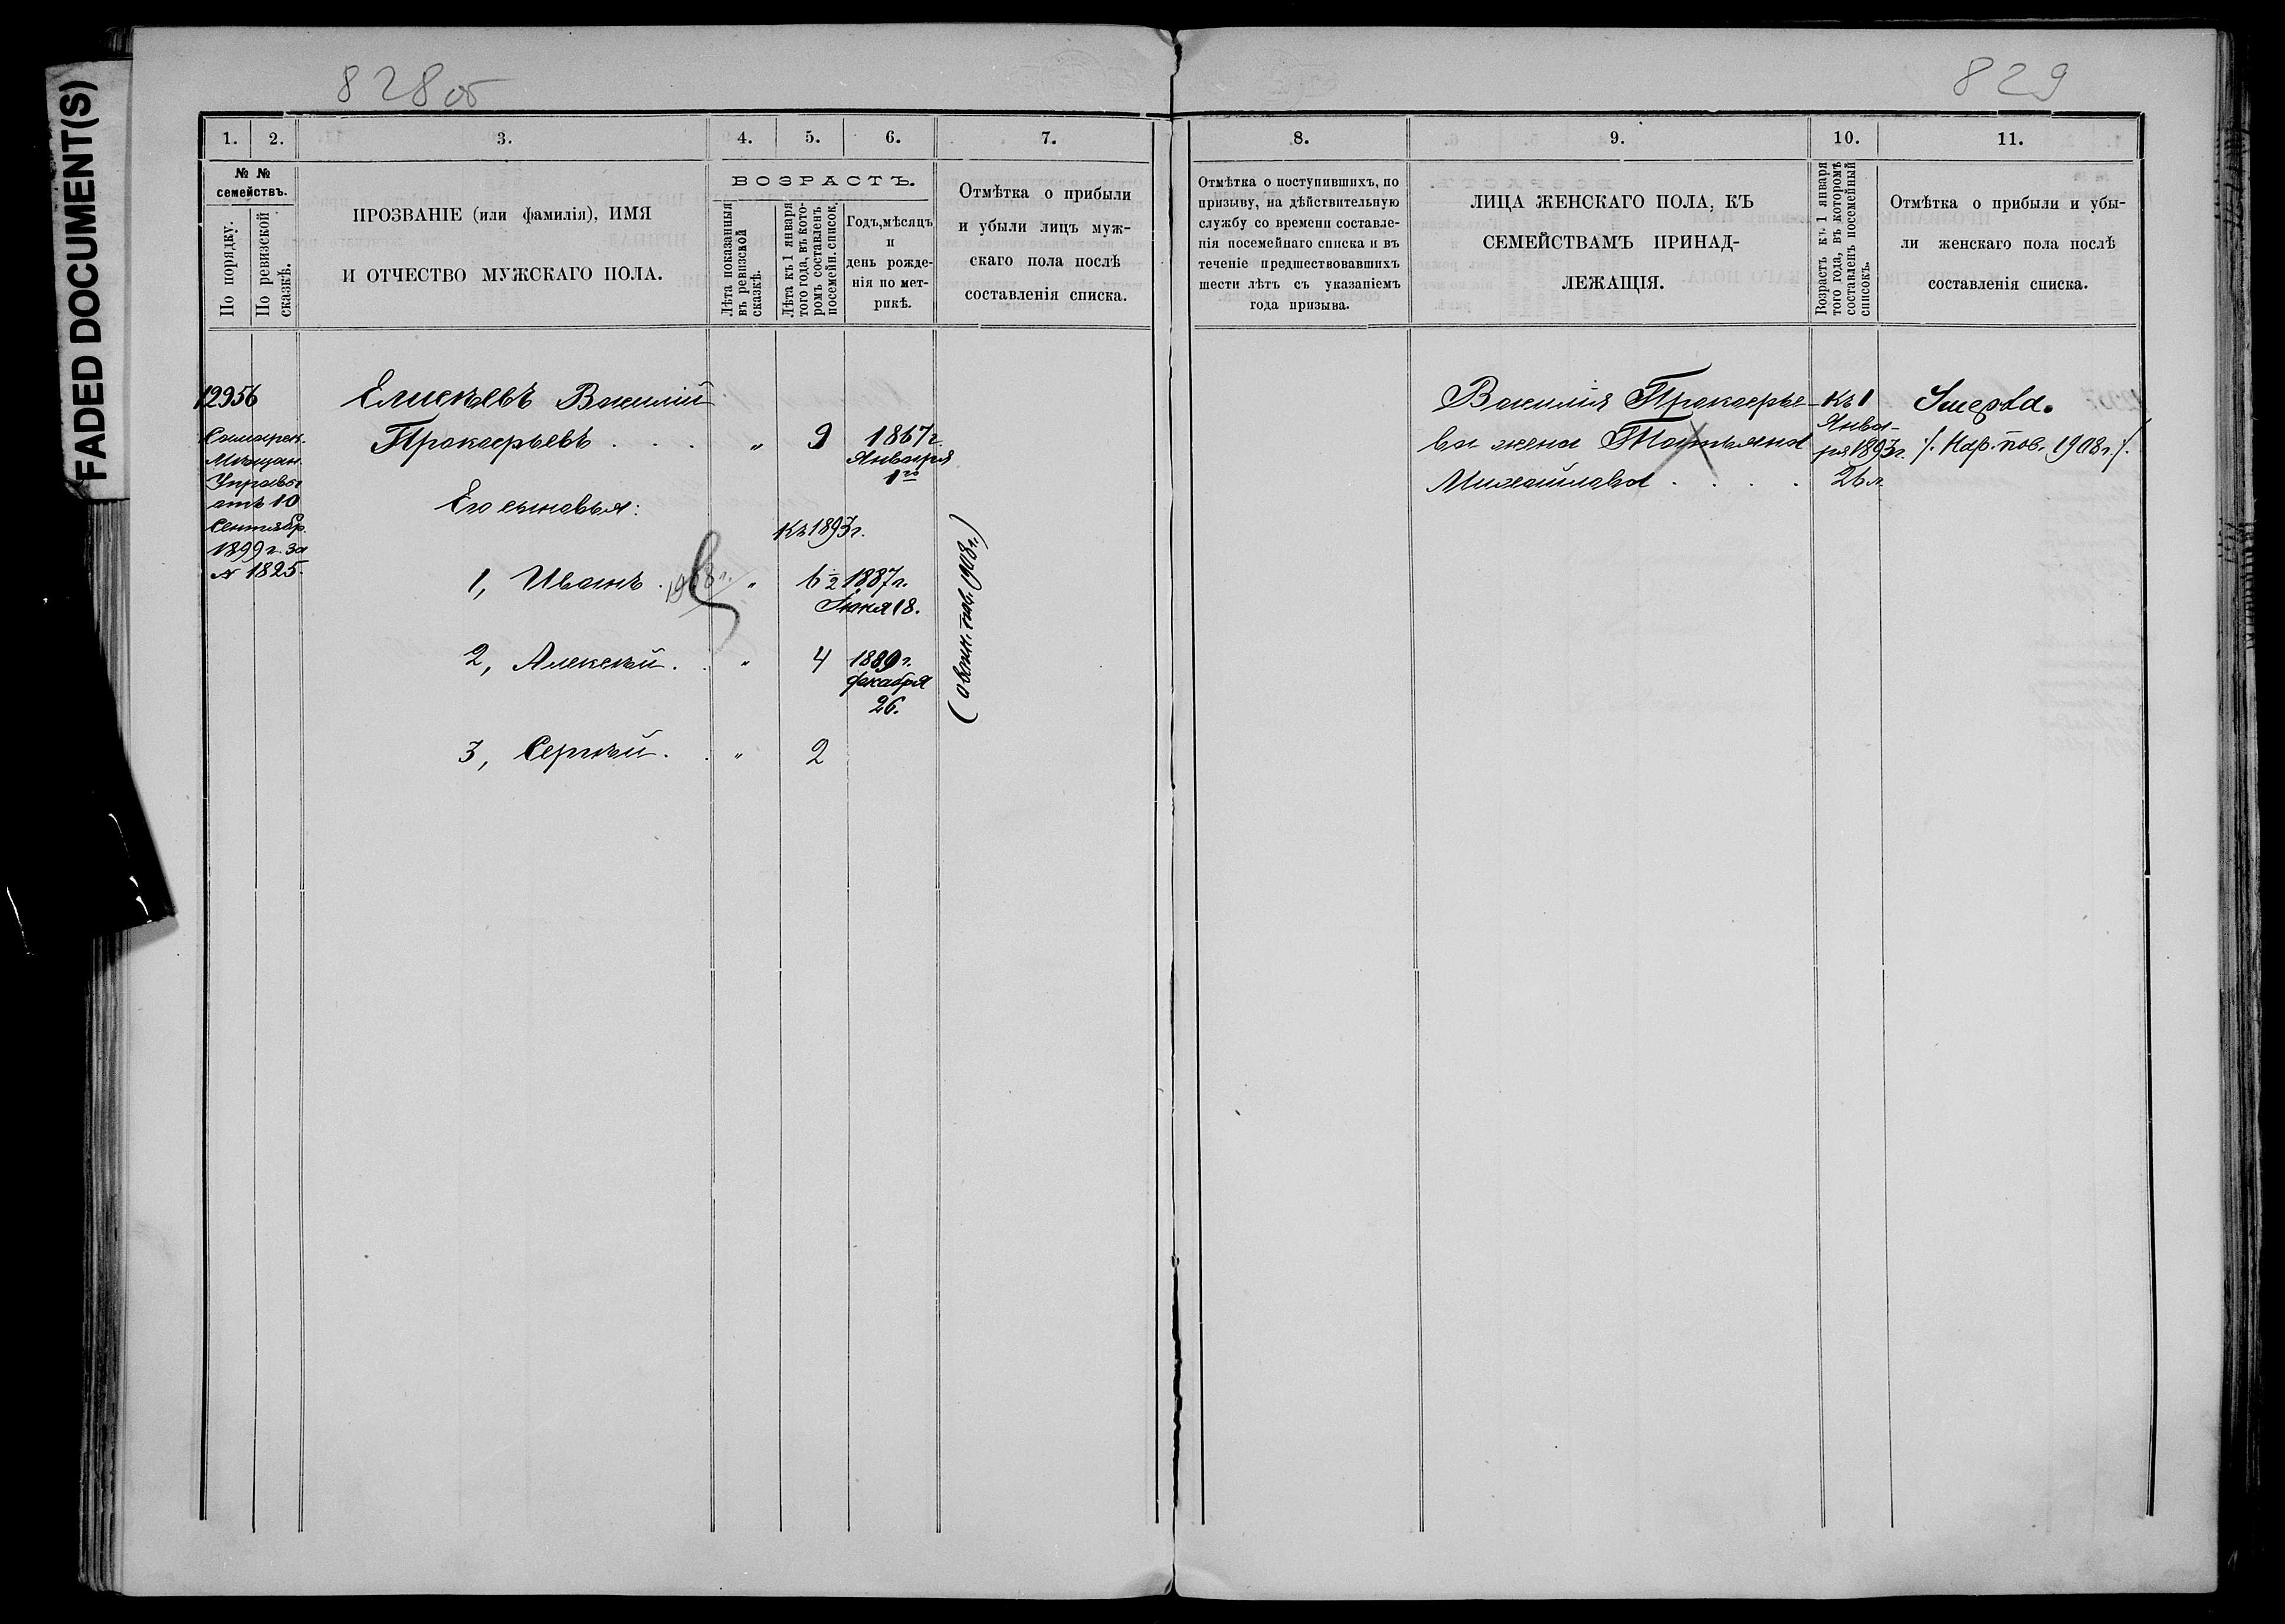 FADED DOCUMENT(S)
828 об
829
1.
2.
3.
4.
5.
6.
7.
8.
9.
10.
11.
№ №
семействъ.
По порядку.
По ревизской
сказкѣ.
ПРОЗВАНІЕ (или фамилія), ИМЯ
И ОТЧЕСТВО МУЖСКАГО ПОЛА.
ВОЗРАСТЪ.
Лѣта показанныя
въ ревизской
сказкѣ.
Лѣта къ 1 января
того года, въ кото-
ромъ составленъ
посемейн. список.
Годъ, мѣсяцъ
и
день рожде-
нія по мет-
рикѣ.
Отмѣтка о прибыли
и убыли лицъ муж-
скаго пола послѣ
составленія списка.
Отмѣтка о поступившихъ, по
призыву, на дѣйствительную
службу со времени составле-
нія посемейнаго списка и въ
теченіе предшествовавшихъ
шести лѣтъ съ указаніемъ
года призыва.
ЛИЦА ЖЕНСКАГО ПОЛА, КЪ
СЕМЕЙСТВАМЪ ПРИНАД-
ЛЕЖАЩІЯ.
Возрастъ къ 1 января
того года, въ которомъ
составленъ посемейный
списокъ.
Отмѣтка о прибыли и убы-
ли женскаго пола послѣ
составленія списка.
12956
Самарск.
Мѣщан.
Управы
отъ 10
Сентябр.
1899 г. за
№ 1825.
Елисѣевъ Василій
Прокофьевъ . . . " 9 1867 г.
Января
1го
Его сыновья:
къ 1893 г.
1, Иванъ . 1908 г. " 6 1/2 1887 г.
Іюня 18.
2, Алексѣй . . " 4 1889 г.
декабря
26.
3, Сергѣй . . " 2
пов. 1908 г.)
Василія Прокофье-
ва жена Татьяна
Михайлова . . . .
къ 1
Янва-
ря 1893 г.
26 л.
Умерла.
/. Нар. пов. 1908 г. /.